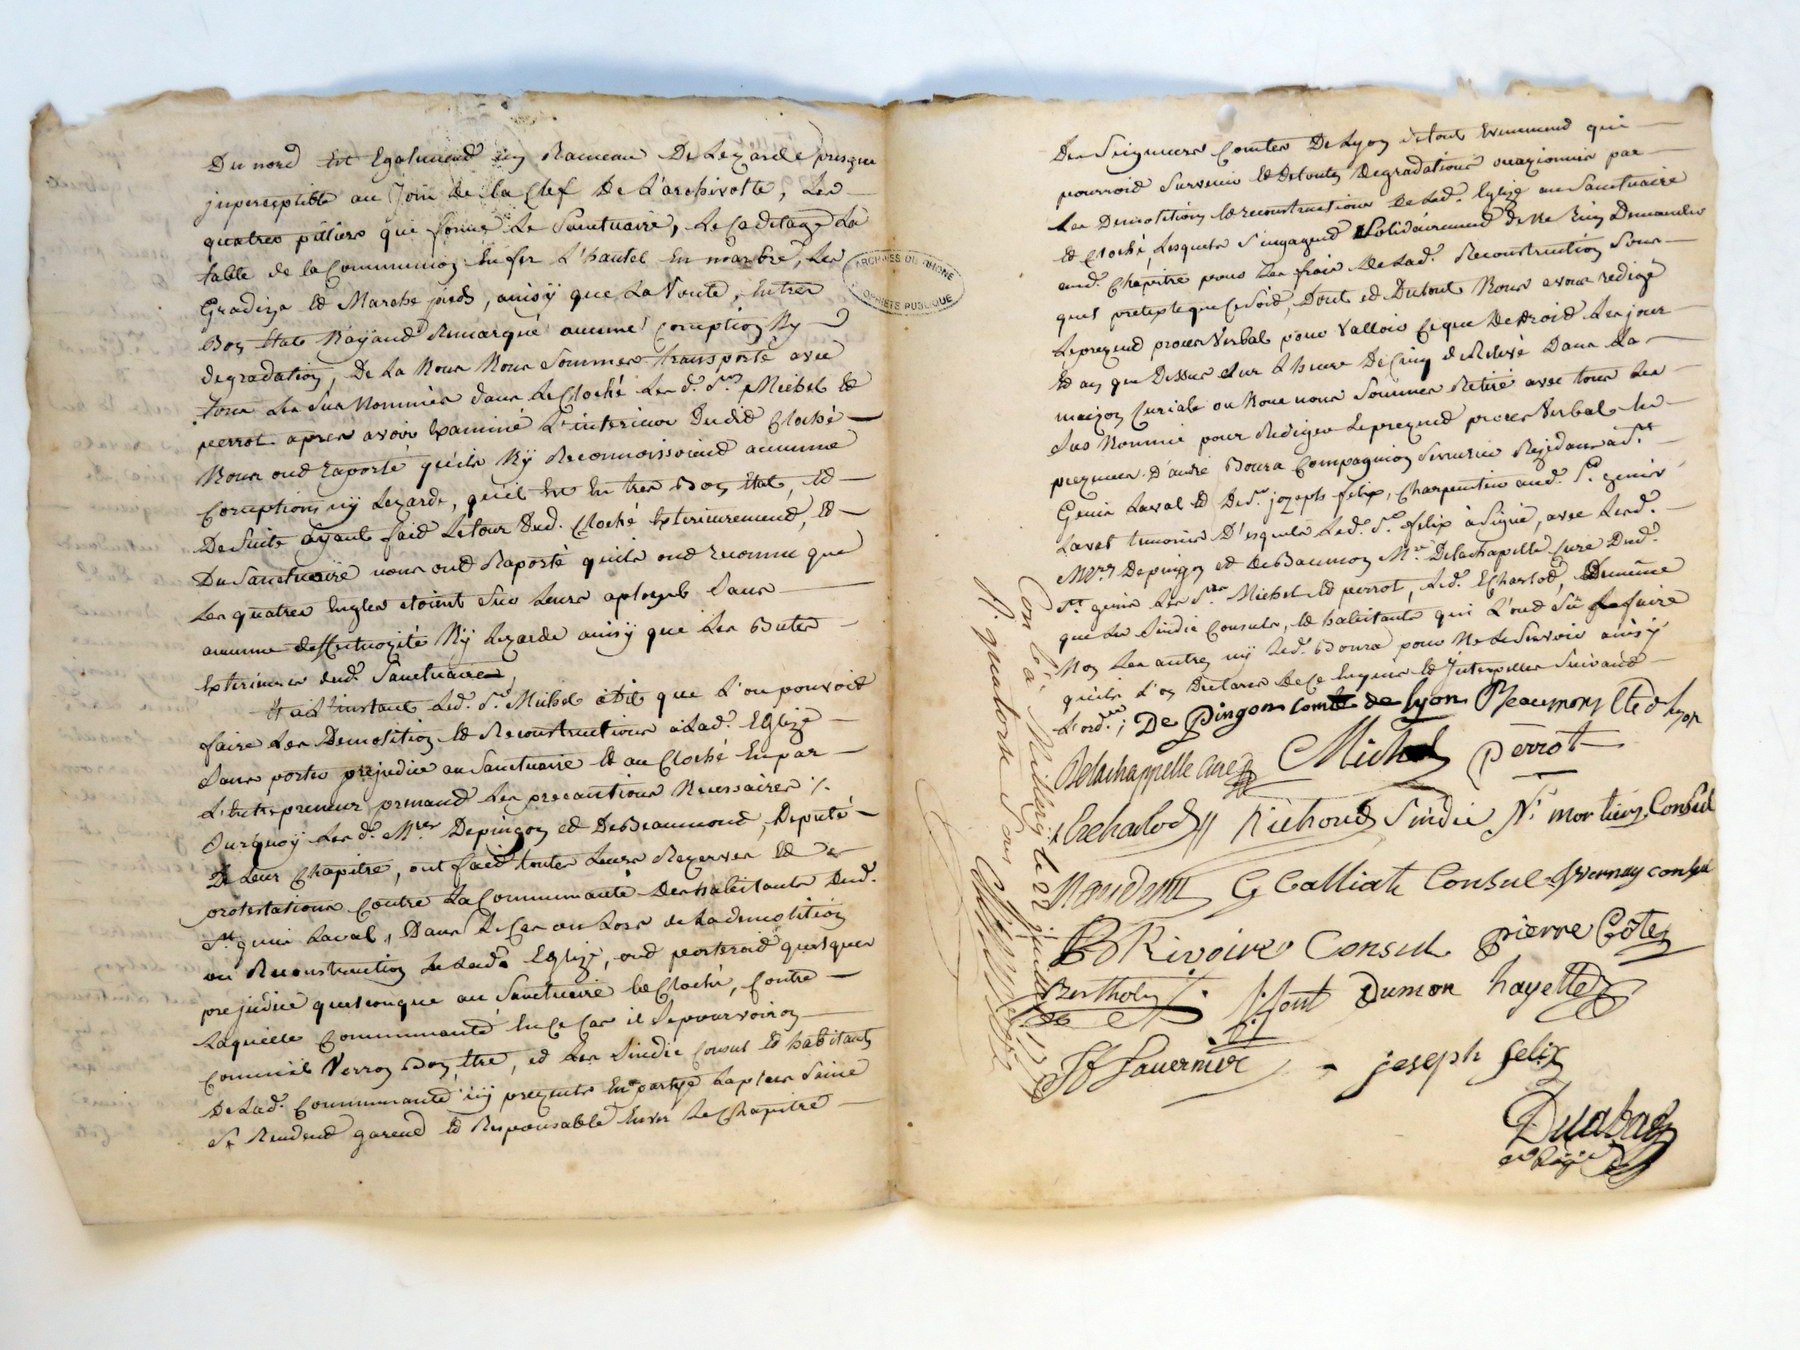 Du nord est Egalement un Rameau De Lezarde presque
jnperseptible au Join de la Clef De L'archivolte, Les
quatres pilliers qui forme Le Sanctuaire, Le Cadetage La
table de la Communion En fer L'hautel En marbre, Les
Gradins Et Marche pieds, ainsÿ que La Voute, En tres
Bon Etat Nayand Remarqué aucune Coruption Ny
degradation, De La Nous Nous Sommes transporté avec
Tous Les Sus Nommés dans Le Cloché Les d. Srs Michel Et
perrot apres avoir Examiné L'interieur Dudit Cloché
Nous ond raporté qu'ils Nÿ Reconnoissoiend aucune
Coruptions nÿ Lezarde, qu'il Est En tres Bon Etat, Et
De Suite aÿant faid Letour dud. Cloché Exterieuremend, Et
Du Sanctuaire nous ond Raporté quils ond reconnu que
Les quatres Engles etoint Sur Leurs aplomb Sans
aucune deffectuozité Nÿ Lezarde ainsÿ que Les Butes
Exterieures dud. Sanctuaire,
Et a L'instant Led. Sr. Michel a Dit que L'on pouvoid
faire Les Demolition Et Reconstructions a Lad. Eglize
Sans porter prejudice au Sanctuaire Et au Cloché En par
L'Entrepreneur prenand Les precautions Necessaires ·/.
Surquoÿ Lesd. Mres Depingon Et DeBeaumond, Deputé
De Leur Chapitre, ont faid toutes Leurs Rezerves Et
protestations Contre La Communauté Des habitants Dud.
St. genis Laval, Dans Le Cas ou Lors de La demolition
ou Reconstruction de Lad. Eglize, ond porteroid quelques
prejudice quelconque au Sanctuaire Et Cloché, Contre
Laquelle Communauté En Ce Cas il Se pourvoiron
Comme ils Verron Bon Etre, Et Les Sindic Consul Et habitants
De Lad. Communauté ÿ prezents En partÿe La plus Saine
Se Rendend garend Et Responsable Envers Le Chapitre
Des Seigneurs Comtes De Lyon detout Evenemend qui
pourroid Survenir Et De toutes Degradations occazionnés par
Les Demolitions Et reconstructions De Lad. Eglize au Sanctuaire
Et Cloché, Lesquels S'engagend Solidairemend de Ne Rien Demander
aud. Chapitre pour Les frais de Lad. Reconstruction Sous
quel pretexte que Ce Soid, Dont Et Dutout Nous avons redigé
Le prezend proces Verbal pour Valloir Ce que De droid Les jour
Et an que Dessus Sur L'heure De Cinq de Relevé Dans La
maizon Curiale ou Nous nous Sommes Retiré avec tous Les
Sus Nommé pour Rediger Le prezend proces Verbal En
prezence D'andré Boura Compagnion Serrurier Rezidant a St.
Genis Laval Et De Sr jozeph felix, Charpentier aud. St. genis
Laval temoins D'esquels Led. Sr. felix à Signé, avec Lesd.
Mres Depingon et De Beaumon Mre Delachapelle Cure Dud.
St. genis Les Srs Michel Et perrot, Led. Echalod, Demême
que Les Sindic Consuls, Et habitants qui L'ond Sû faire
Non Les autres nÿ Led. Boura pour Ne Le Savoir ainsÿ
qu'ils L'on Declarés De Ce Enquis Et Interpellés Suivand
L'ord.ce ; De Pingon comte de lyon Beaumont Cte d Lyon
Delachappelle Cure Michel perrot
Echalod Richoud Sindic N. mortier Consul
G Calliat Consul Vernay consul
B Rivoire Consul pierre Côte
Bertholy font Dumon hayette
Jf Favernier jeseph felix
Con le à Millery le 22 juillet 1779
R. quatorze Sols
ARCHIVES DU RHONE
PROPRIÉTÉ PUBLIQUE